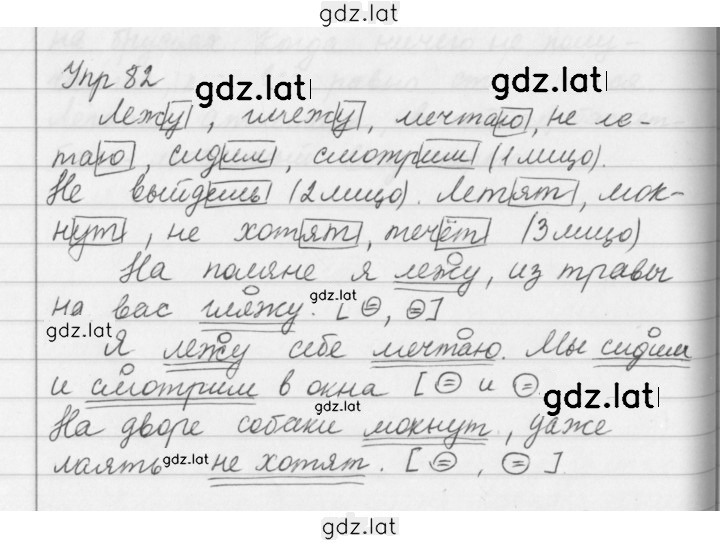 gdz.lat
Упр 82
gdz.lat
Лежу, гляжу, мечтаю, не ле-
таю, сидим, смотрим (1 лицо).
Не выйдешь (2 лицо). Летят, мок-
нут, не хотят, течёт (3 лицо)
На поляне я лежу, из травы
на вас гляжу. [⊜, ⊜]
gdz.lat
gdz.lat
Я лежу себе мечтаю. Мы сидим
и смотрим в окна [⊜ и ⊜
gdz.lat
gdz.lat
На дворе собаки мокнут, даже
лаять не хотят. [⊜, ⊜].
gdz.lat
gdz.lat